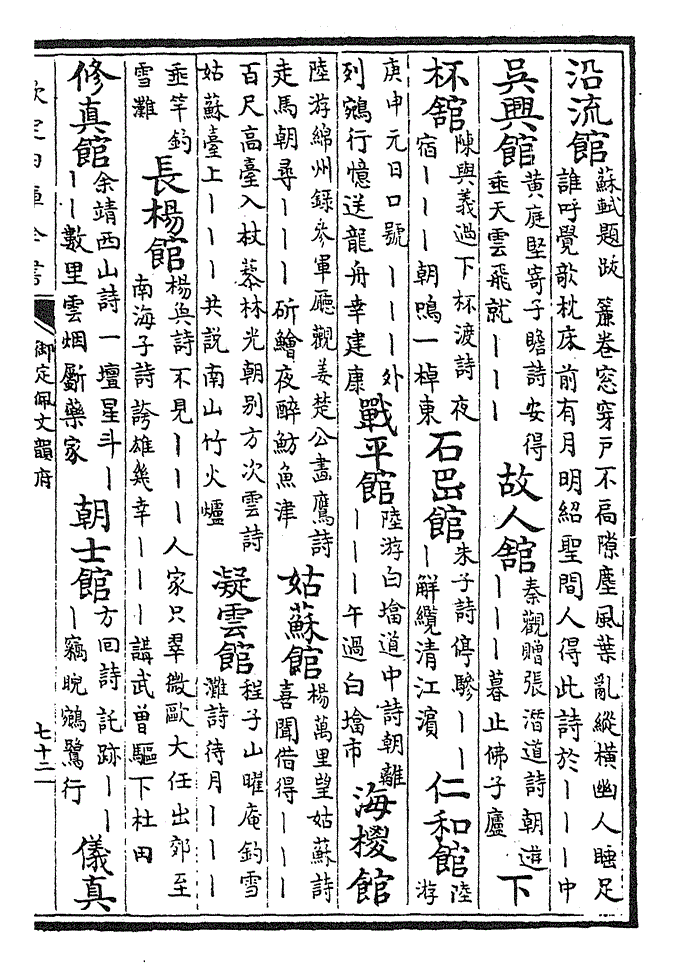 沿流館
蘇軾題跋 簾卷窓穿戶不扃隙塵風葉亂縱橫幽人睡足
誰呼覺欹枕床前有月明紹聖間人得此詩於丨丨丨中
吳興館
黃庭堅寄子瞻詩安得
垂天雲飛就丨丨丨
故人館
秦觀贈張潛道詩朝遊
丨丨丨暮止佛子廬
下
杯館
陳與義過下杯渡詩夜
宿丨丨丨朝鴨一棹東
石岊館
朱子詩停驂丨丨
丨解纜清江濱
仁和館
陸
游
庚申元日口號 丨丨丨外
列鵷行憶送龍舟幸建康
戰平館
陸游白㙮道中詩朝離
丨丨丨午過白㙮市
海椶館
陸游綿州錄參軍廳觀姜楚公畫鷹詩
走馬朝尋丨丨丨斫鱠夜醉魴魚津
姑蘇館
楊萬里望姑蘇詩
喜聞借得丨丨丨
百尺高臺入杖藜林光朝别方次雲詩
姑蘇臺上丨丨丨共説南山竹火爐
凝雲館
程子山曜庵釣雪
灘詩待月丨丨丨
垂竿釣
雪灘
長楊館
楊奐詩不見丨丨丨人家只翠微歐大任出郊至
南海子詩誇雄幾幸丨丨丨講武曾驅下杜田
修真館
余靖西山詩一壇星斗丨
丨丨數里雲烟斸藥家
朝士館
方回詩託跡丨丨
丨竊睨鵷鷺行
儀真
欽定四庫全書
御定佩文韻府
七十二